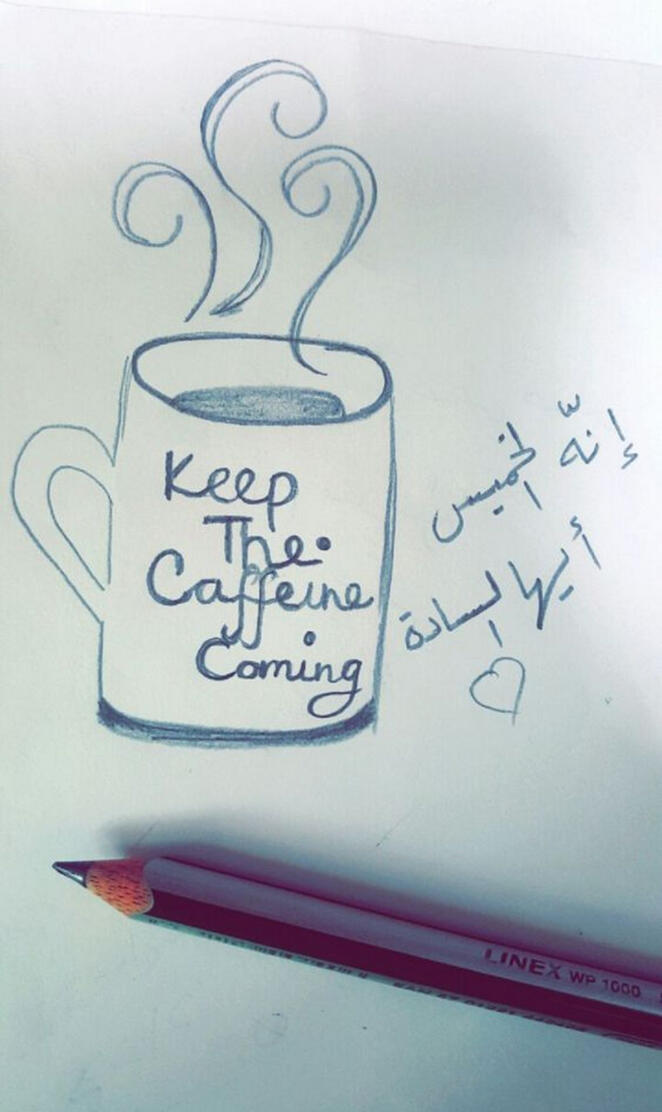 Keep
The
Caffeine
Coming
إنّه الخميس
أيها السادة
LINEX WP 1000